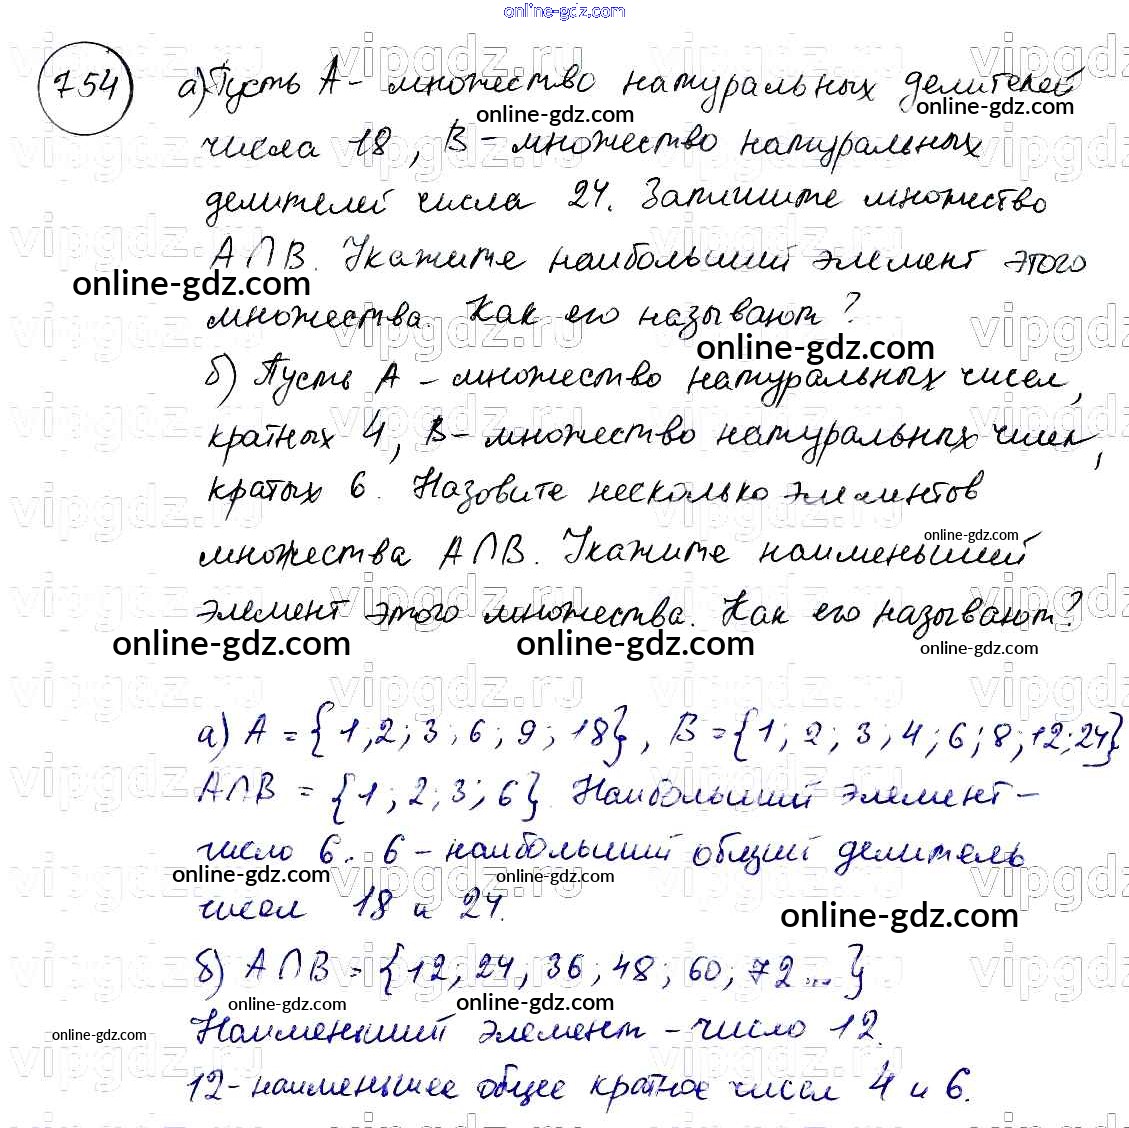 online-gdz.com
754 а) Пусть A - множество натуральных делителей
online-gdz.com online-gdz.com
числа 18, B - множество натуральных
делителей числа 24. Запишите множество
A∩B. Укажите наибольший элемент этого
online-gdz.com
множества. Как его называют?
online-gdz.com
б) Пусть A - множество натуральных чисел,
кратных 4, B - множество натуральных чисел,
кратых 6. Назовите несколько элементов
online-gdz.com
множества A∩B. Укажите наименьший
элемент этого множества. Как его называют?
online-gdz.com online-gdz.com online-gdz.com
а) A = {1;2;3;6;9;18}, B = {1;2;3;4;6;8;12;24}
A∩B = {1;2;3;6}. Наибольший элемент -
число 6. 6 - наибольший общий делитель
online-gdz.com online-gdz.com
чисел 18 и 24.
online-gdz.com
б) A∩B = {12;24;36;48;60;72...}
online-gdz.com online-gdz.com
Наименьший элемент - число 12.
online-gdz.com
12 - наименьшее общее кратное чисел 4 и 6.
vipgdz.ru